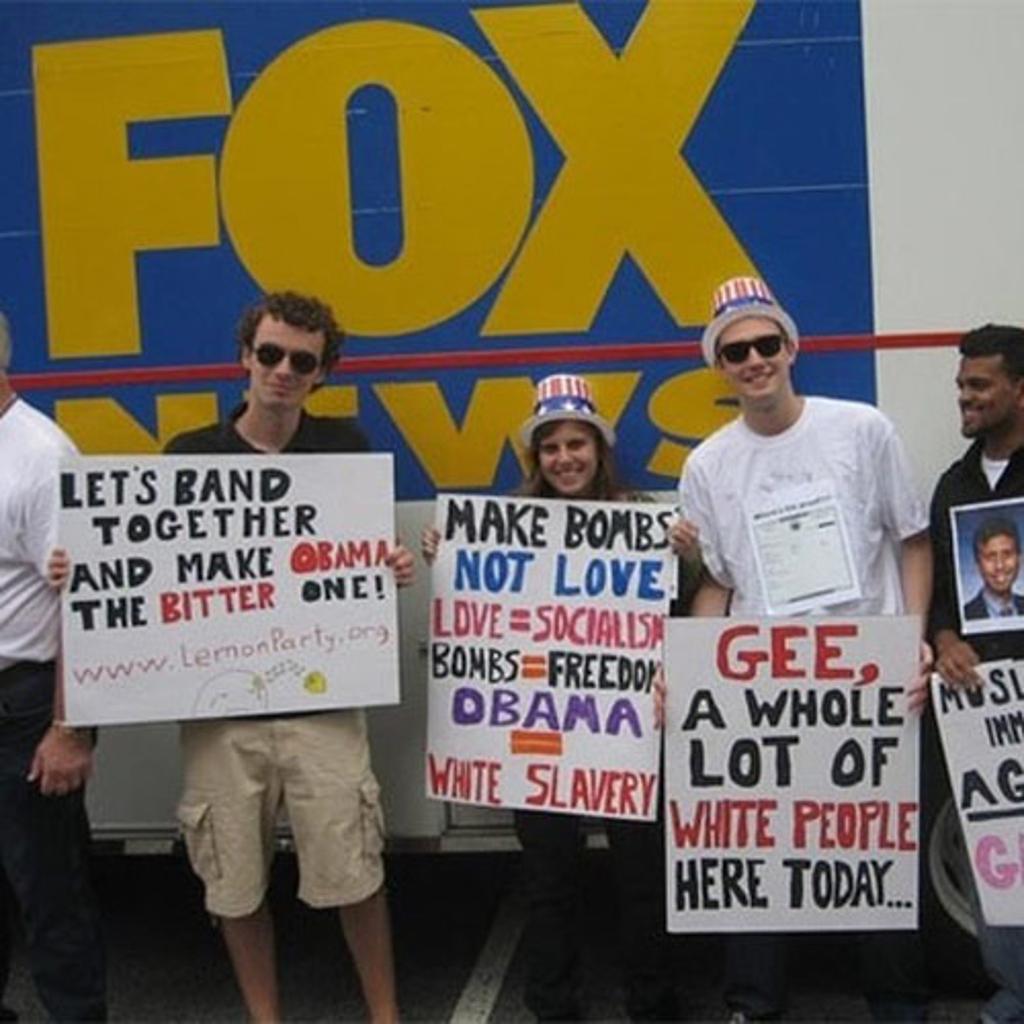 FOX
NEWS
LET'S BAND
TOGETHER
AND MAKE OBAMA
THE BITTER ONE!
www.LemonParty.org
MAKE BOMBS
NOT LOVE
LOVE = SOCIALISM
BOMBS = FREEDOM
OBAMA
=
WHITE SLAVERY
GEE,
A WHOLE
LOT OF
WHITE PEOPLE
HERE TODAY...
MUSL
IMM
AG
G